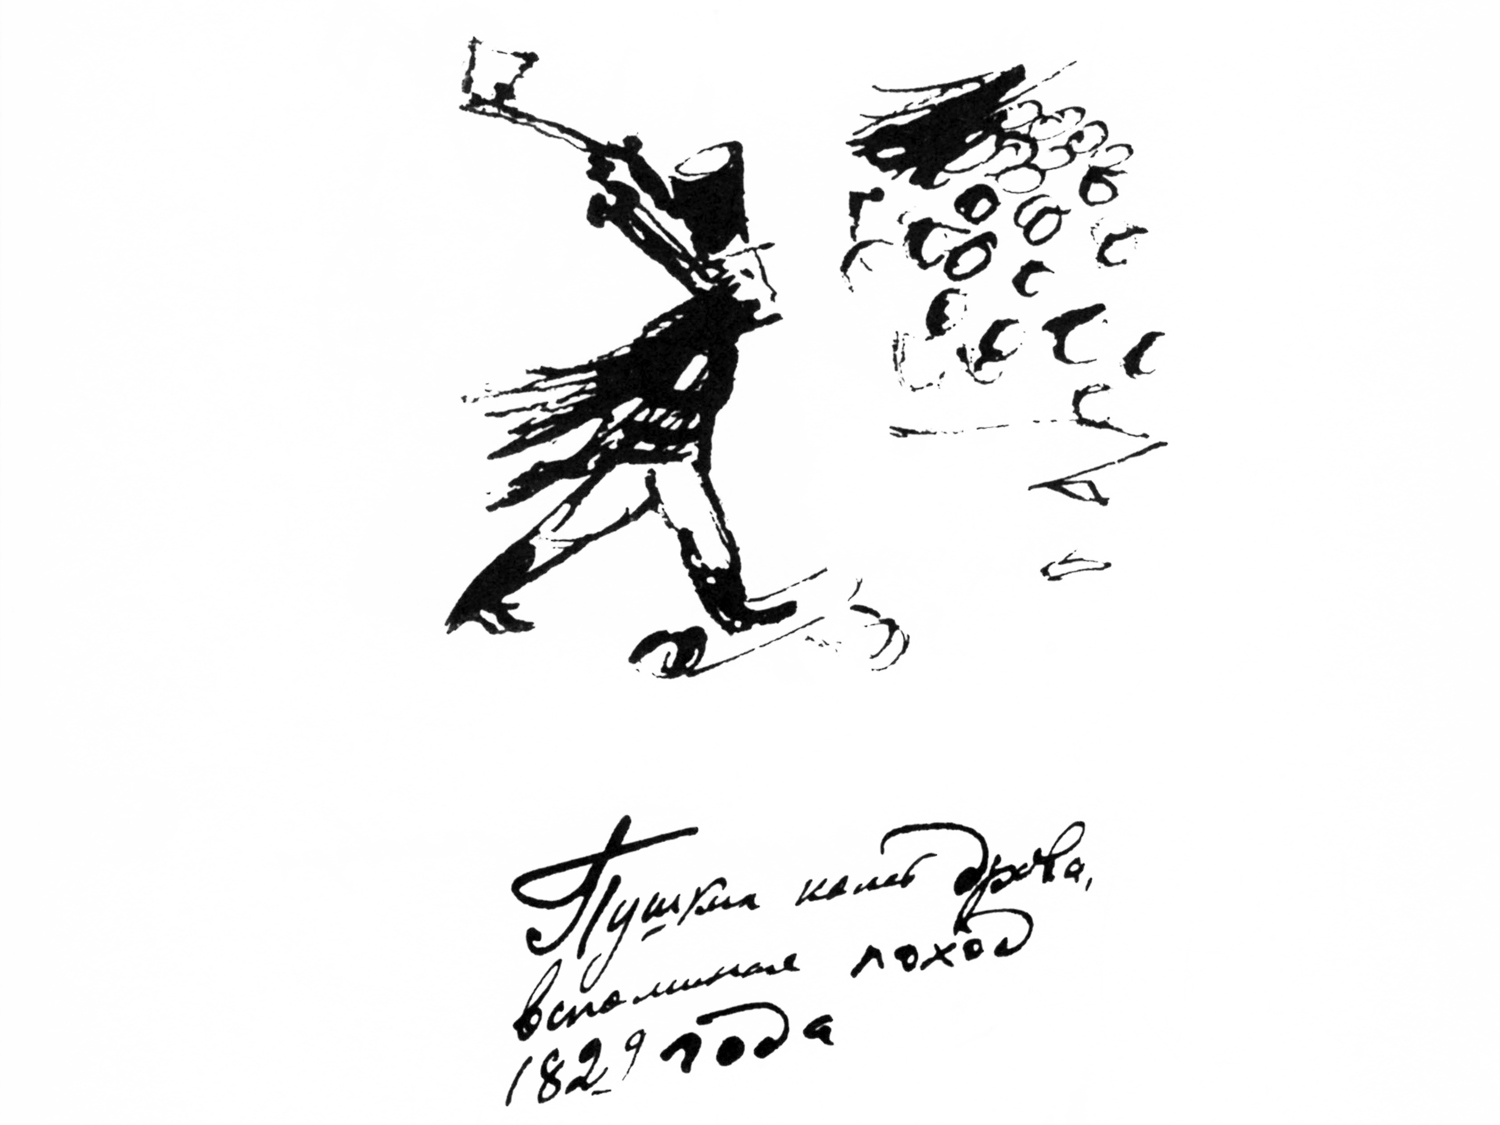 Пушкин колет дрова,
вспоминая поход
1829 года